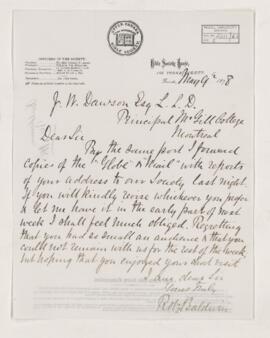 UPPER CANADA
BIBLE SOCIETY
OFFICERS OF THE SOCIETY.
Bible Society House,
102 YONGE STREET,
Toronto, May 9th 1878
J. W. Dawson Esq L. L. D.
Principal McGill College
Montreal
Dear Sir
Per the same post I forward
copies of the "Globe" & "Mail" with reports
of your address to our Society last night.
If you will kindly revise whichever you prefer
& let me have it in the early part of next
week I shall feel much obliged. Regretting
that you had so small an audience & that you
could not remain with us for the rest of the week
but hoping that you enjoyed your visit
I am, dear Sir
Yours truly
Baldwin